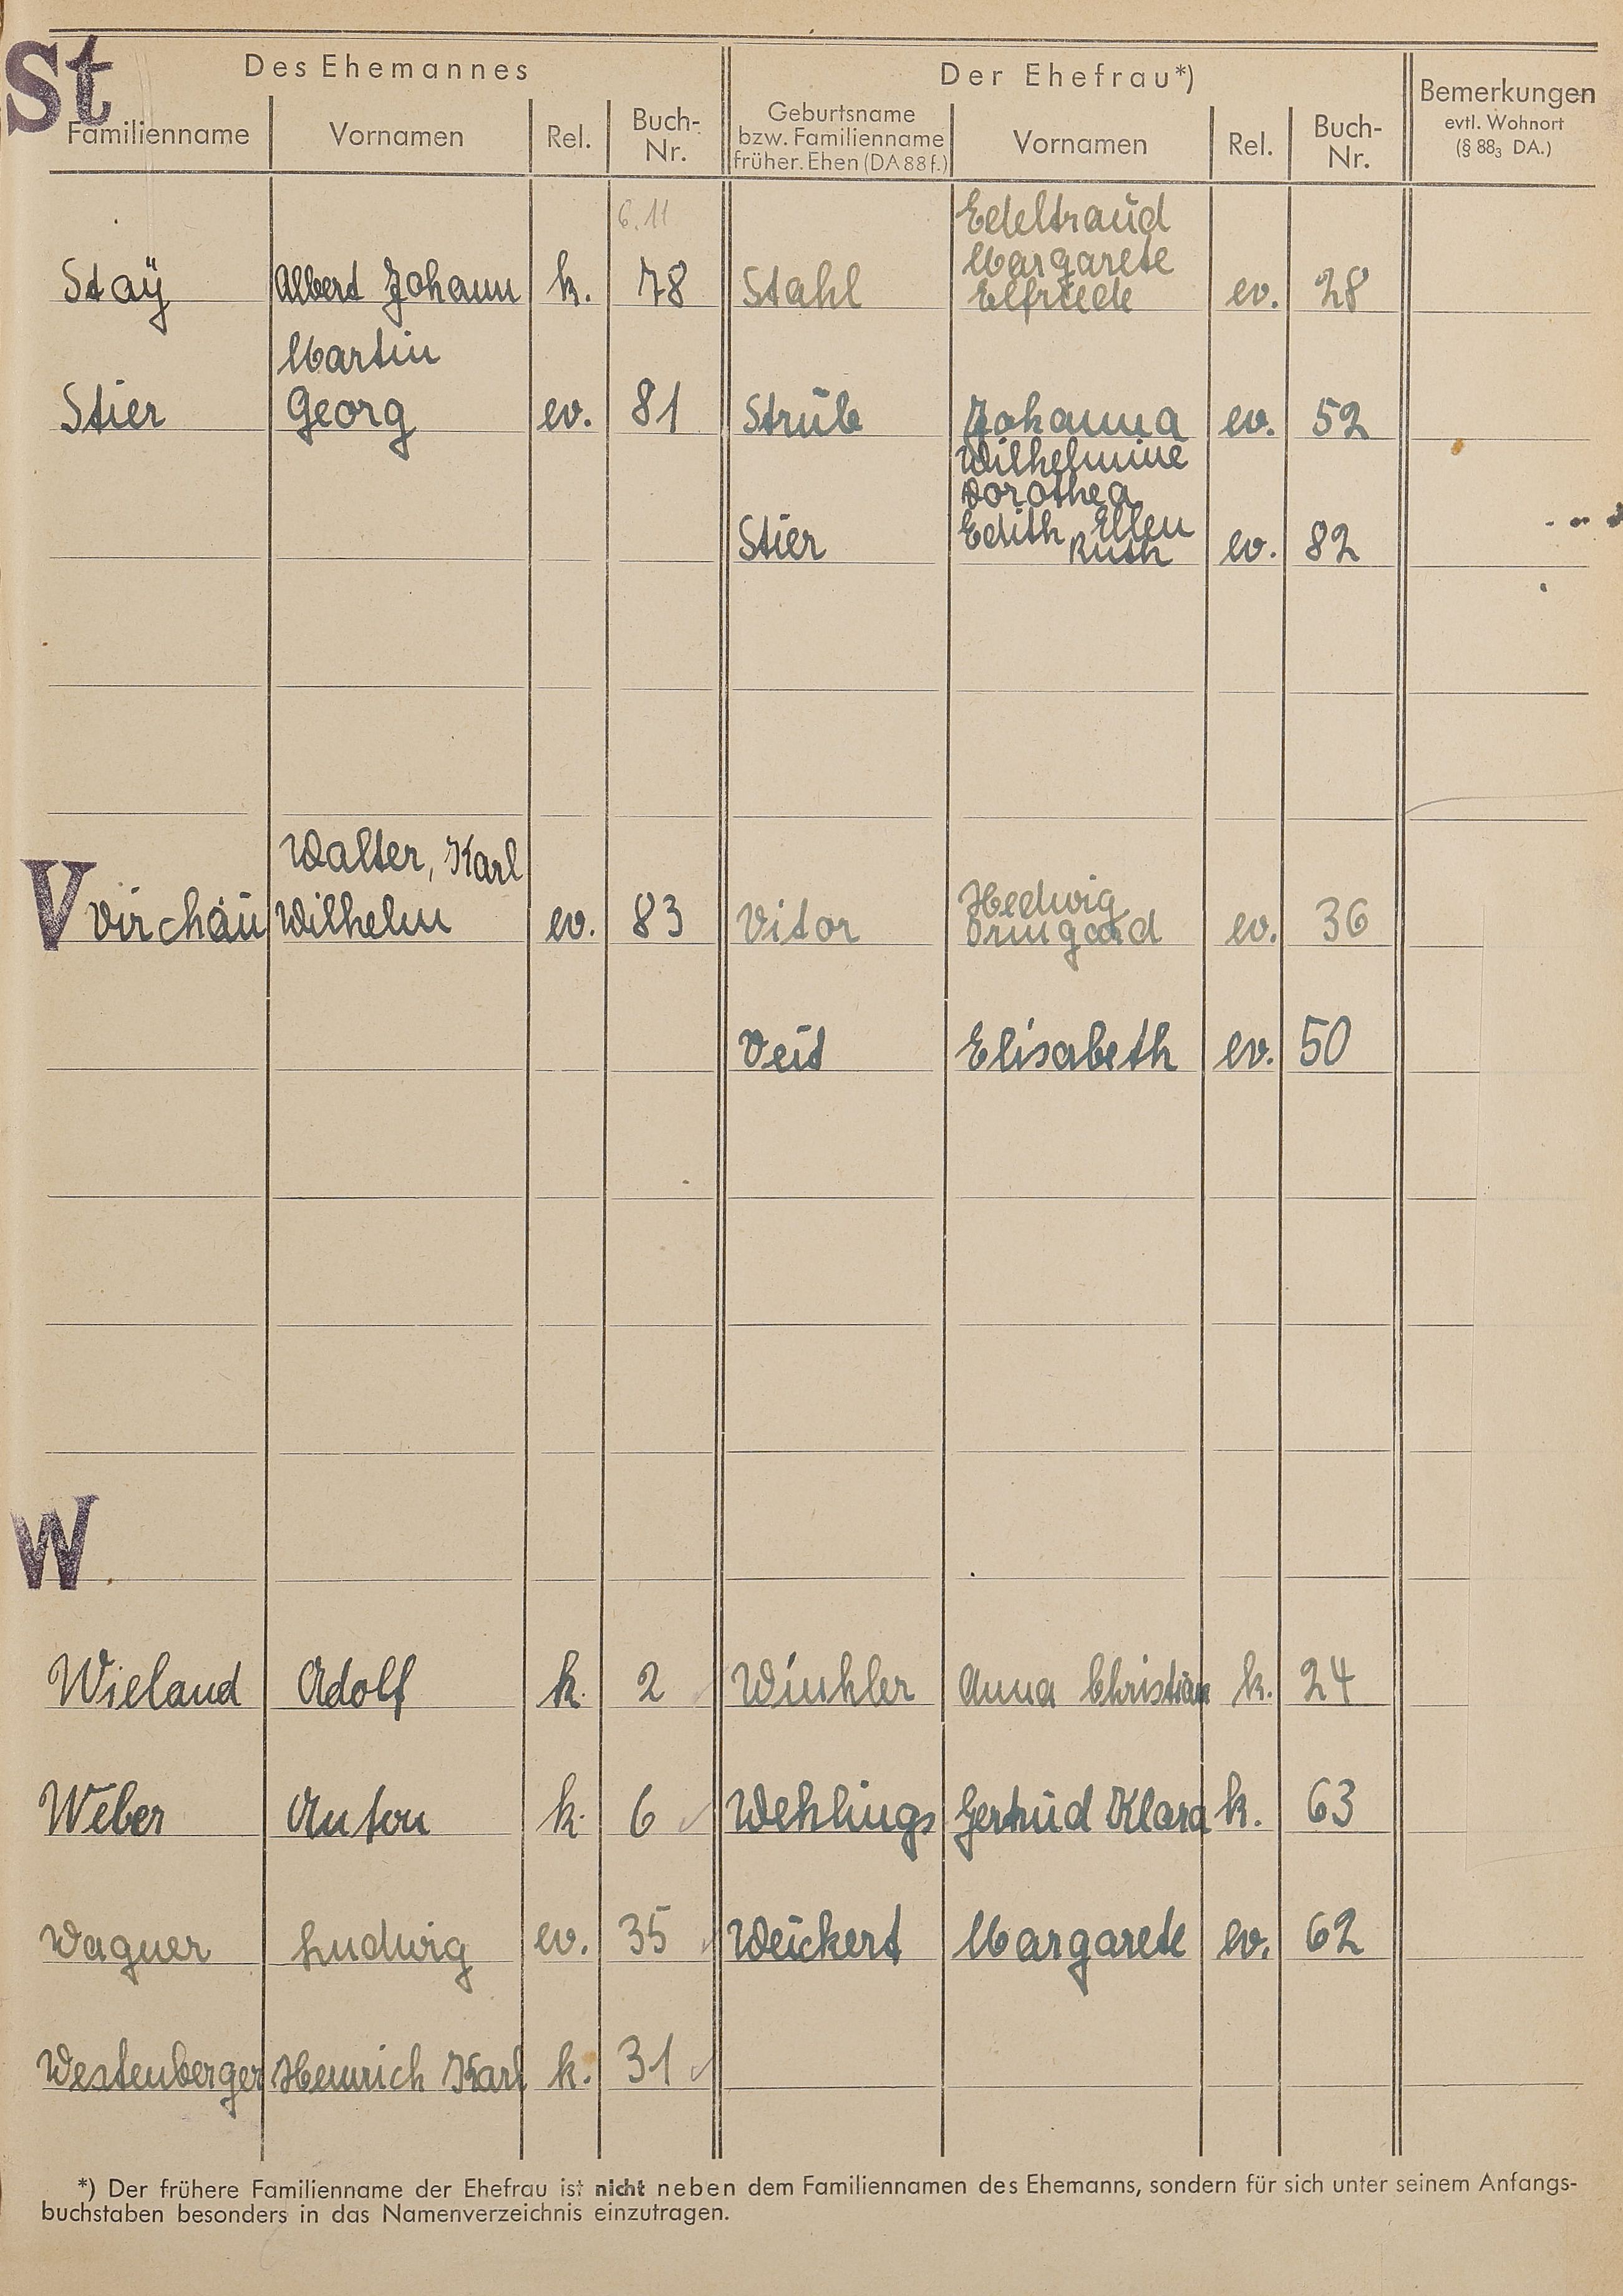 St
Des Ehemannes
Der Ehefrau*)
Familienname Vornamen Rel. Buch-Nr. Geburtsname bzw. Familienname früher. Ehen (DA 88 f.) Vornamen Rel. Buch-Nr. Bemerkungen evtl. Wohnort (§ 88₃ DA.)
6.11 Edeltraud
Margarete
Staÿ Albert Johann k. 78 Stahl Elfriede ev. 28
Martin
Stier Georg ev. 81 Strüb Johanna ev. 52
Wilhelmine
Dorothea
Stier Edith Ellen ev. 82
Ruth
Walter, Karl
V Virchau Wilhelm ev. 83 Vitor Hedwig ev. 36
Irmgard
Veit Elisabeth ev. 50
W
Wieland Adolf k. 2 Winkler Anna Christian k. 24
Weber Anton k. 6 Wehlings Gertrud Klara k. 63
Wagner Ludwig ev. 35 Weickert Margarete ev. 62
Westenberger Heinrich Karl k. 31
*) Der frühere Familienname der Ehefrau ist nicht neben dem Familiennamen des Ehemanns, sondern für sich unter seinem Anfangs-
buchstaben besonders in das Namenverzeichnis einzutragen.